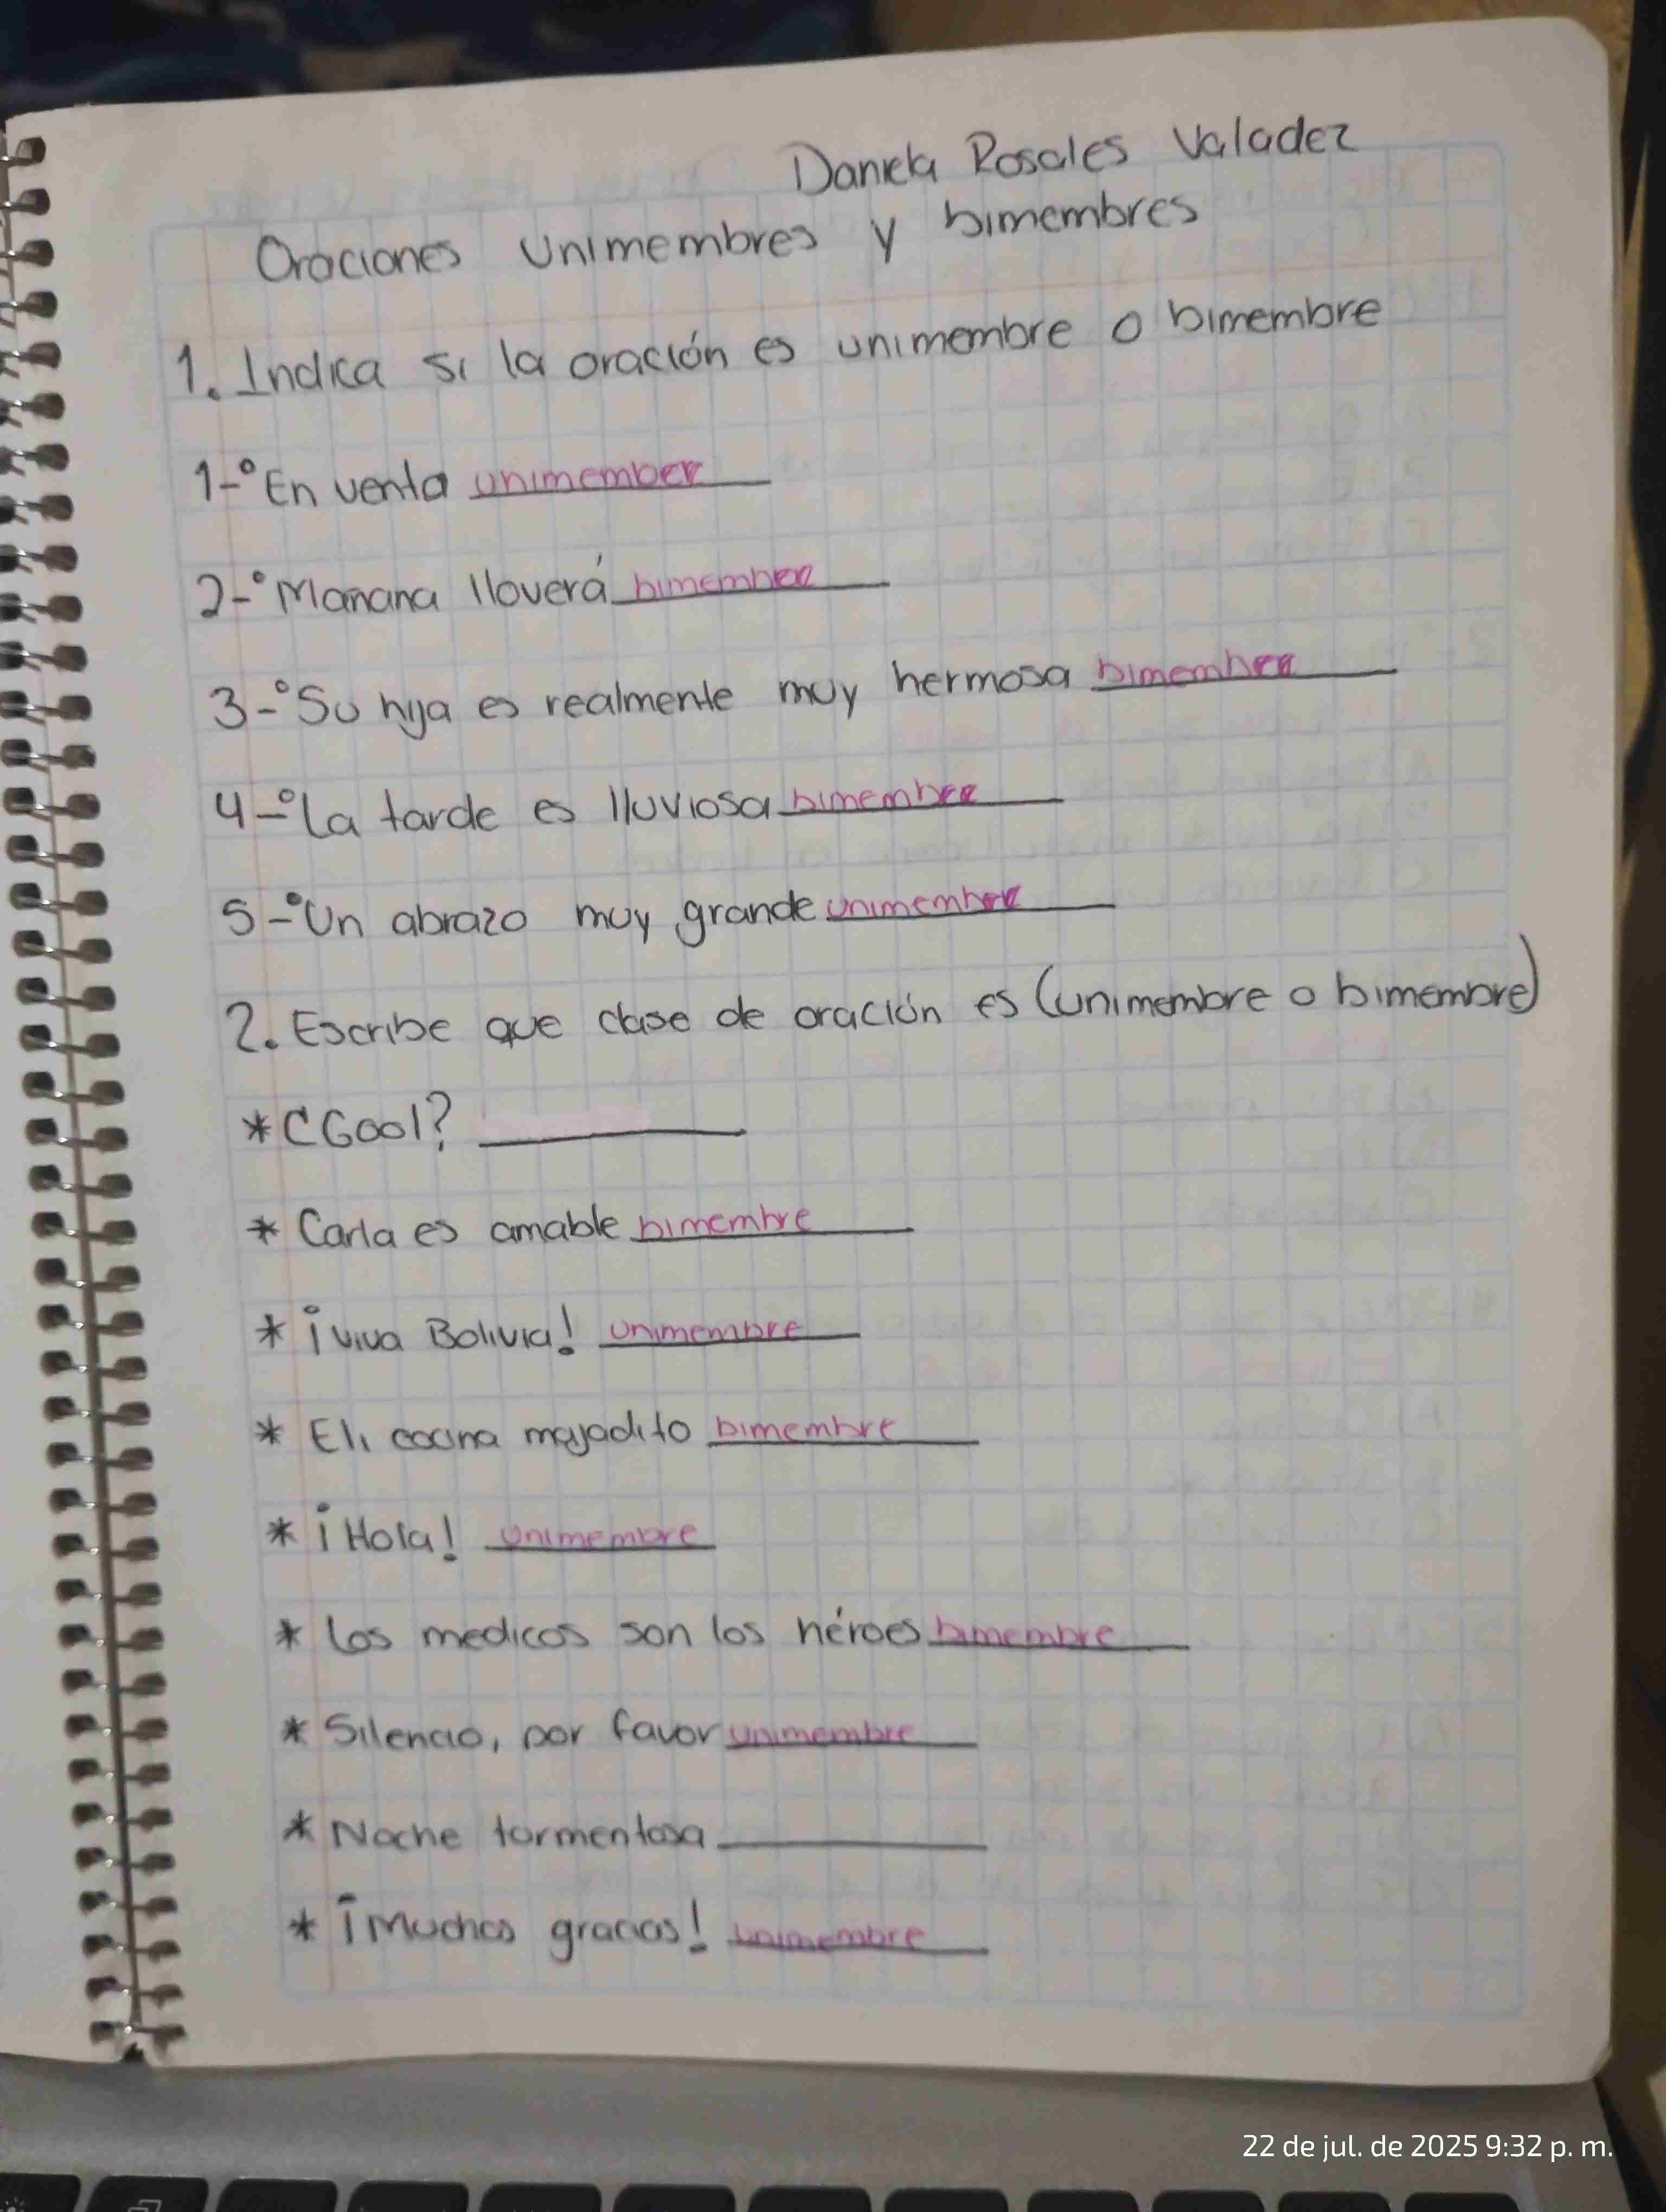 Daniela Rosales Valadez
Oraciones Unimembres y bimembres
1. Indica si la oración es unimembre o bimembre
1-° En venta unimember
2-° Manana lloverá bimember
3-° Su hija es realmente muy hermosa bimember
4-° La tarde es lluviosa bimember
5-° Un abrazo muy grande unimember
2. Escribe que clase de oración es (unimembre o bimembre)
* ¿Gool?
* Carla es amable bimembre
* ¡viva Bolivia! unimembre
* Eli cocina majadito bimembre
* ¡Hola! unimembre
* Los medicos son los héroes bimembre
* Silencio, por favor unimembre
* Noche tormentosa
* ¡Muchas gracias! unimembre
22 de jul. de 2025 9:32 p. m.